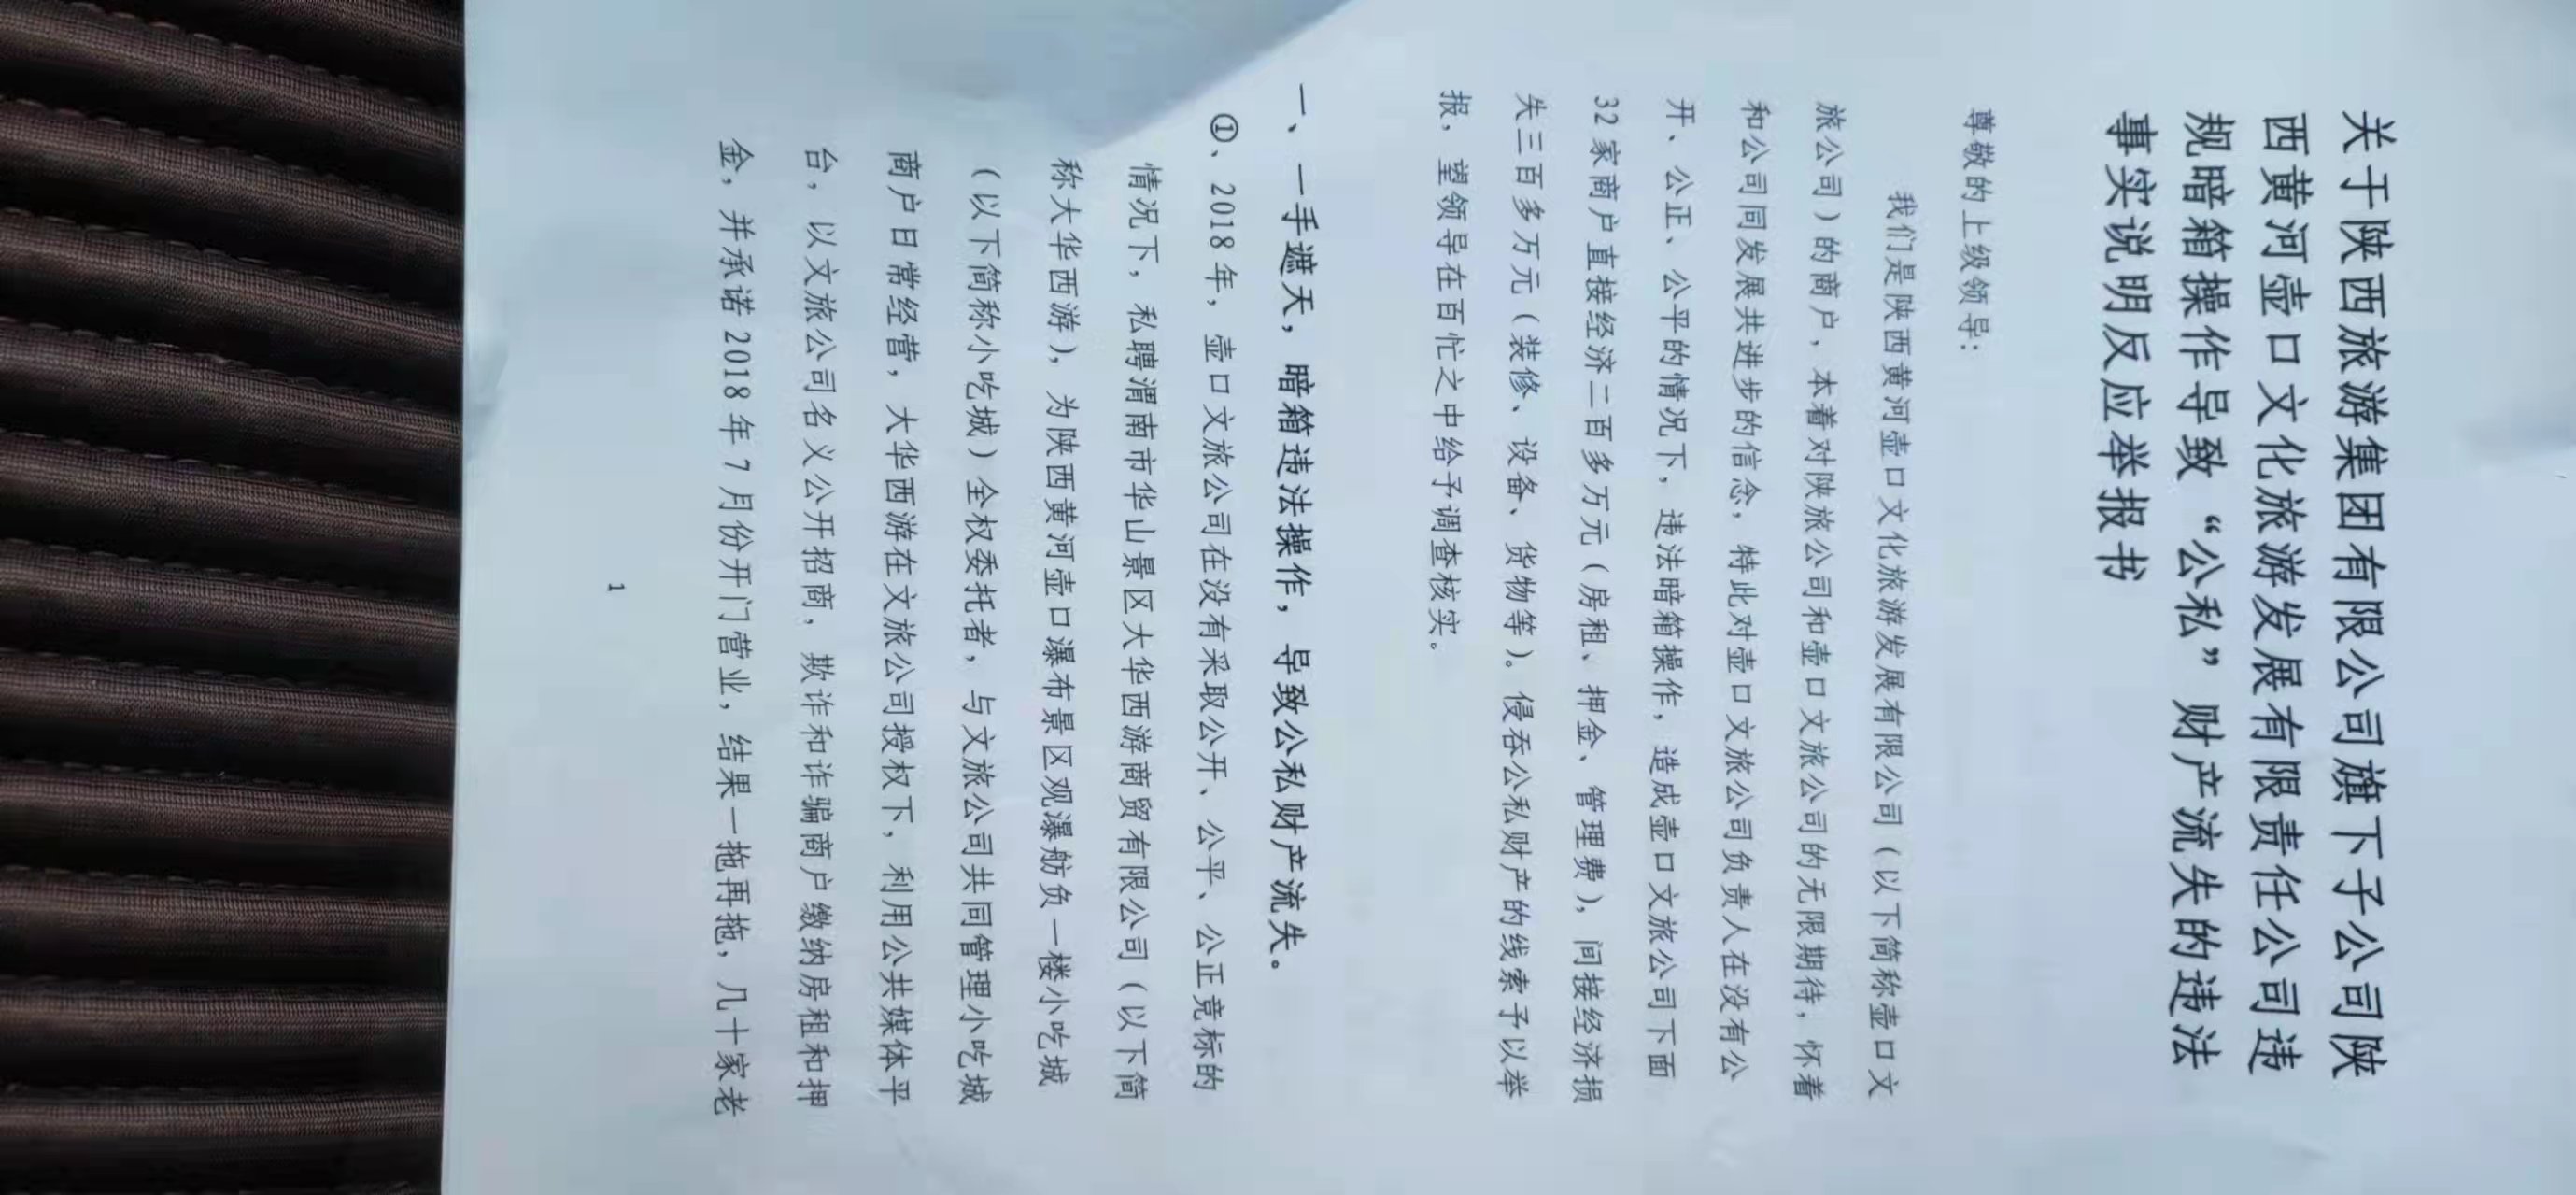 关于陕西旅游集团有限公司旗下子公司陕
西黄河壶口文化旅游发展有限责任公司违
规暗箱操作导致“公私”财产流失的违法
事实说明反应举报书
尊敬的上级领导：
我们是陕西黄河壶口文化旅游发展有限公司（以下简称壶口文
旅公司）的商户，本着对陕旅公司和壶口文旅公司的无限期待，怀着
和公司同发展共进步的信念，特此对壶口文旅公司负责人在没有公
开、公正、公平的情况下，违法暗箱操作，造成壶口文旅公司下面
32家商户直接经济二百多万元（房租、押金、管理费），间接经济损
失三百多万元（装修、设备、货物等）。侵吞公私财产的线索予以举
报，望领导在百忙之中给予调查核实。
一、一手遮天，暗箱违法操作，导致公私财产流失。
①、2018年，壶口文旅公司在没有采取公开、公平、公正竞标的
情况下，私聘渭南市华山景区大华西游商贸有限公司（以下简
称大华西游），为陕西黄河壶口瀑布景区观瀑舫负一楼小吃城
（以下简称小吃城）全权委托者，与文旅公司共同管理小吃城
商户日常经营，大华西游在文旅公司授权下，利用公共媒体平
台，以文旅公司名义公开招商，欺诈和诈骗商户缴纳房租和押
金，并承诺2018年7月份开门营业，结果一拖再拖，几十家老
1